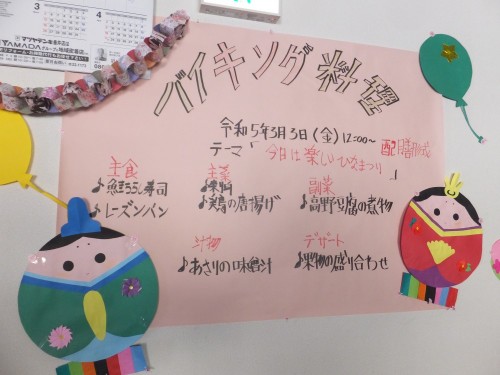 3
4
YAMADA
バイキング料理
令和5年3月3日(金)12:00~
配膳形式
テーマ「今日は楽しいひなまつり」
主食
♪鮭ちらし寿司
♪レーズンパン
主菜
♪鶏の唐揚げ
副菜
♪高野豆腐の煮物
汁物
♪あさりの味噌汁
デザート
♪果物の盛り合わせ